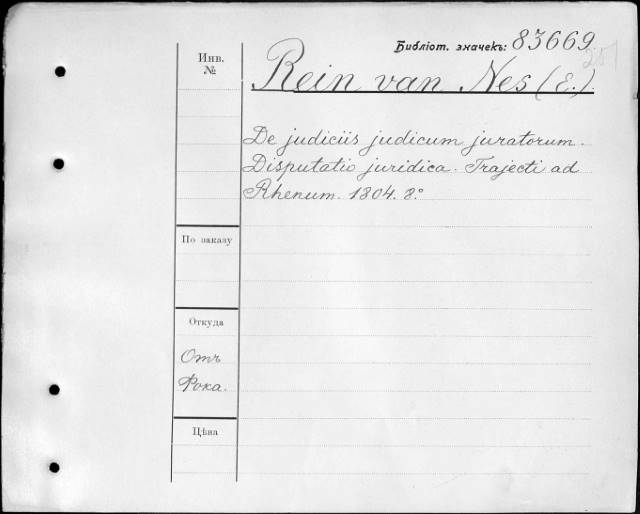 Библіот. значекъ: 83669
Инв.
№
Rein van Nes (E.).
De judiciis judicum juratorum.
Disputatio juridica. Trajecti ad
Rhenum. 1804. 8.°
По заказу
Откуда
Отъ
Рока.
Цѣна